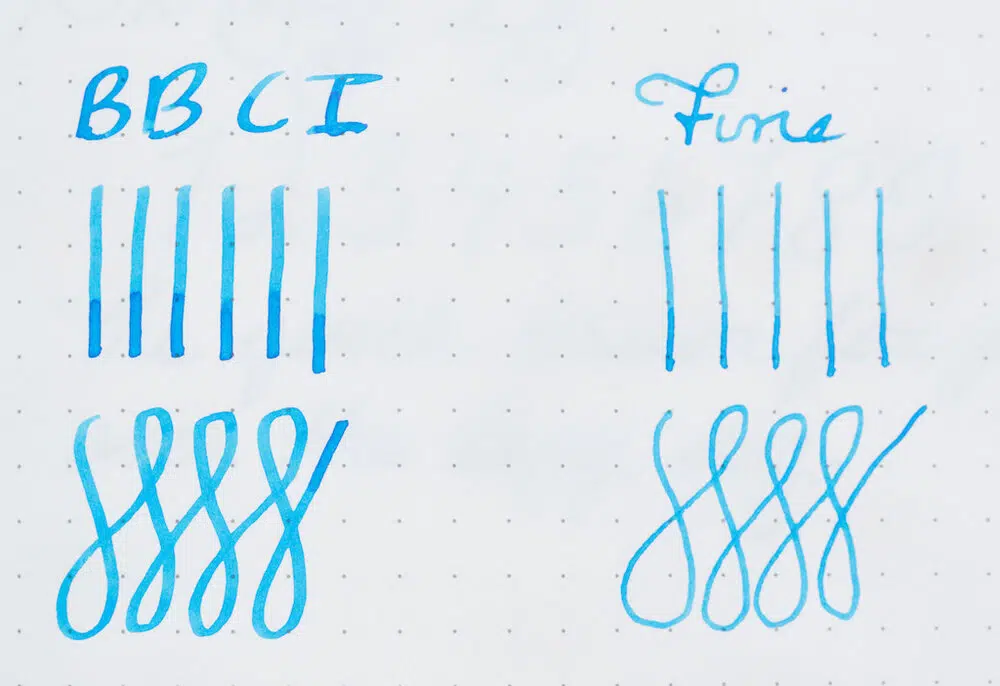 BB CI Fine